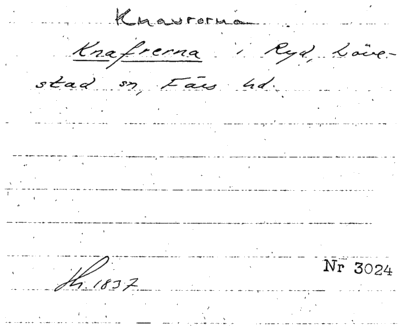 Knavrorna
Knafrerna i Ryd, Löve-
stad sn, Färs hd.
Hn. 1837
Nr 3024